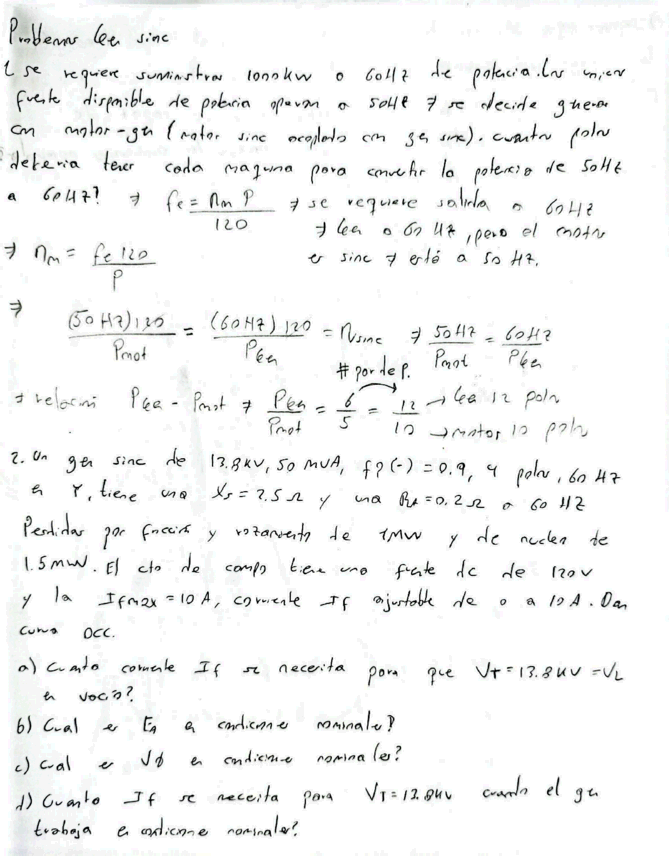 Problemas Gen sinc
1 se requiere suministrar 1000kw a 60Hz de potencia. La unica
fuente disponible de potencia operan a 50Hz ⇒ se decide generar
con motor-gen (motor sinc acoplado con gen sinc). cuantos polos
deberia tener cada maquina para convertir la potencia de 50Hz
a 60Hz? ⇒ fe = nm P / 120 ⇒ se requiere salida a 60Hz
⇒ Gen a 60 Hz, pero el motor
⇒ nm = fe 120 / P es sinc ⇒ está a 50 Hz.
⇒ (50Hz)120 / Pmot = (60Hz)120 / PGen = nsinc ⇒ 50Hz / Pmot = 60Hz / PGen
# par de P.
⇒ relación PGen - Pmot ⇒ PGen / Pmot = 6/5 = 12/10 → Gen 12 polos
→ motor 10 polos
2. Un gen sinc de 13.8KV, 50 MVA, fp(-) = 0.9, 4 polos, 60 Hz
en Y, tiene una Xs = 2.5 Ω y una RA = 0.2 Ω a 60 Hz
Perdidas por fricción y rozamiento de 1MW y de nucleo de
1.5MW. El cto de campo tiene una fuente dc de 120V
y la Ifmax = 10 A, corriente If ajustable de 0 a 10 A. Dan
curva OCC.
a) Cuanta corriente If se necesita para que VT = 13.8KV = VL
en vacio?
b) Cual es EA en condiciones nominales?
c) Cual es Vϕ en condiciones nominales?
d) Cuanto If se necesita para VT = 13.8KV cuando el gen
trabaja en condiciones nominales?